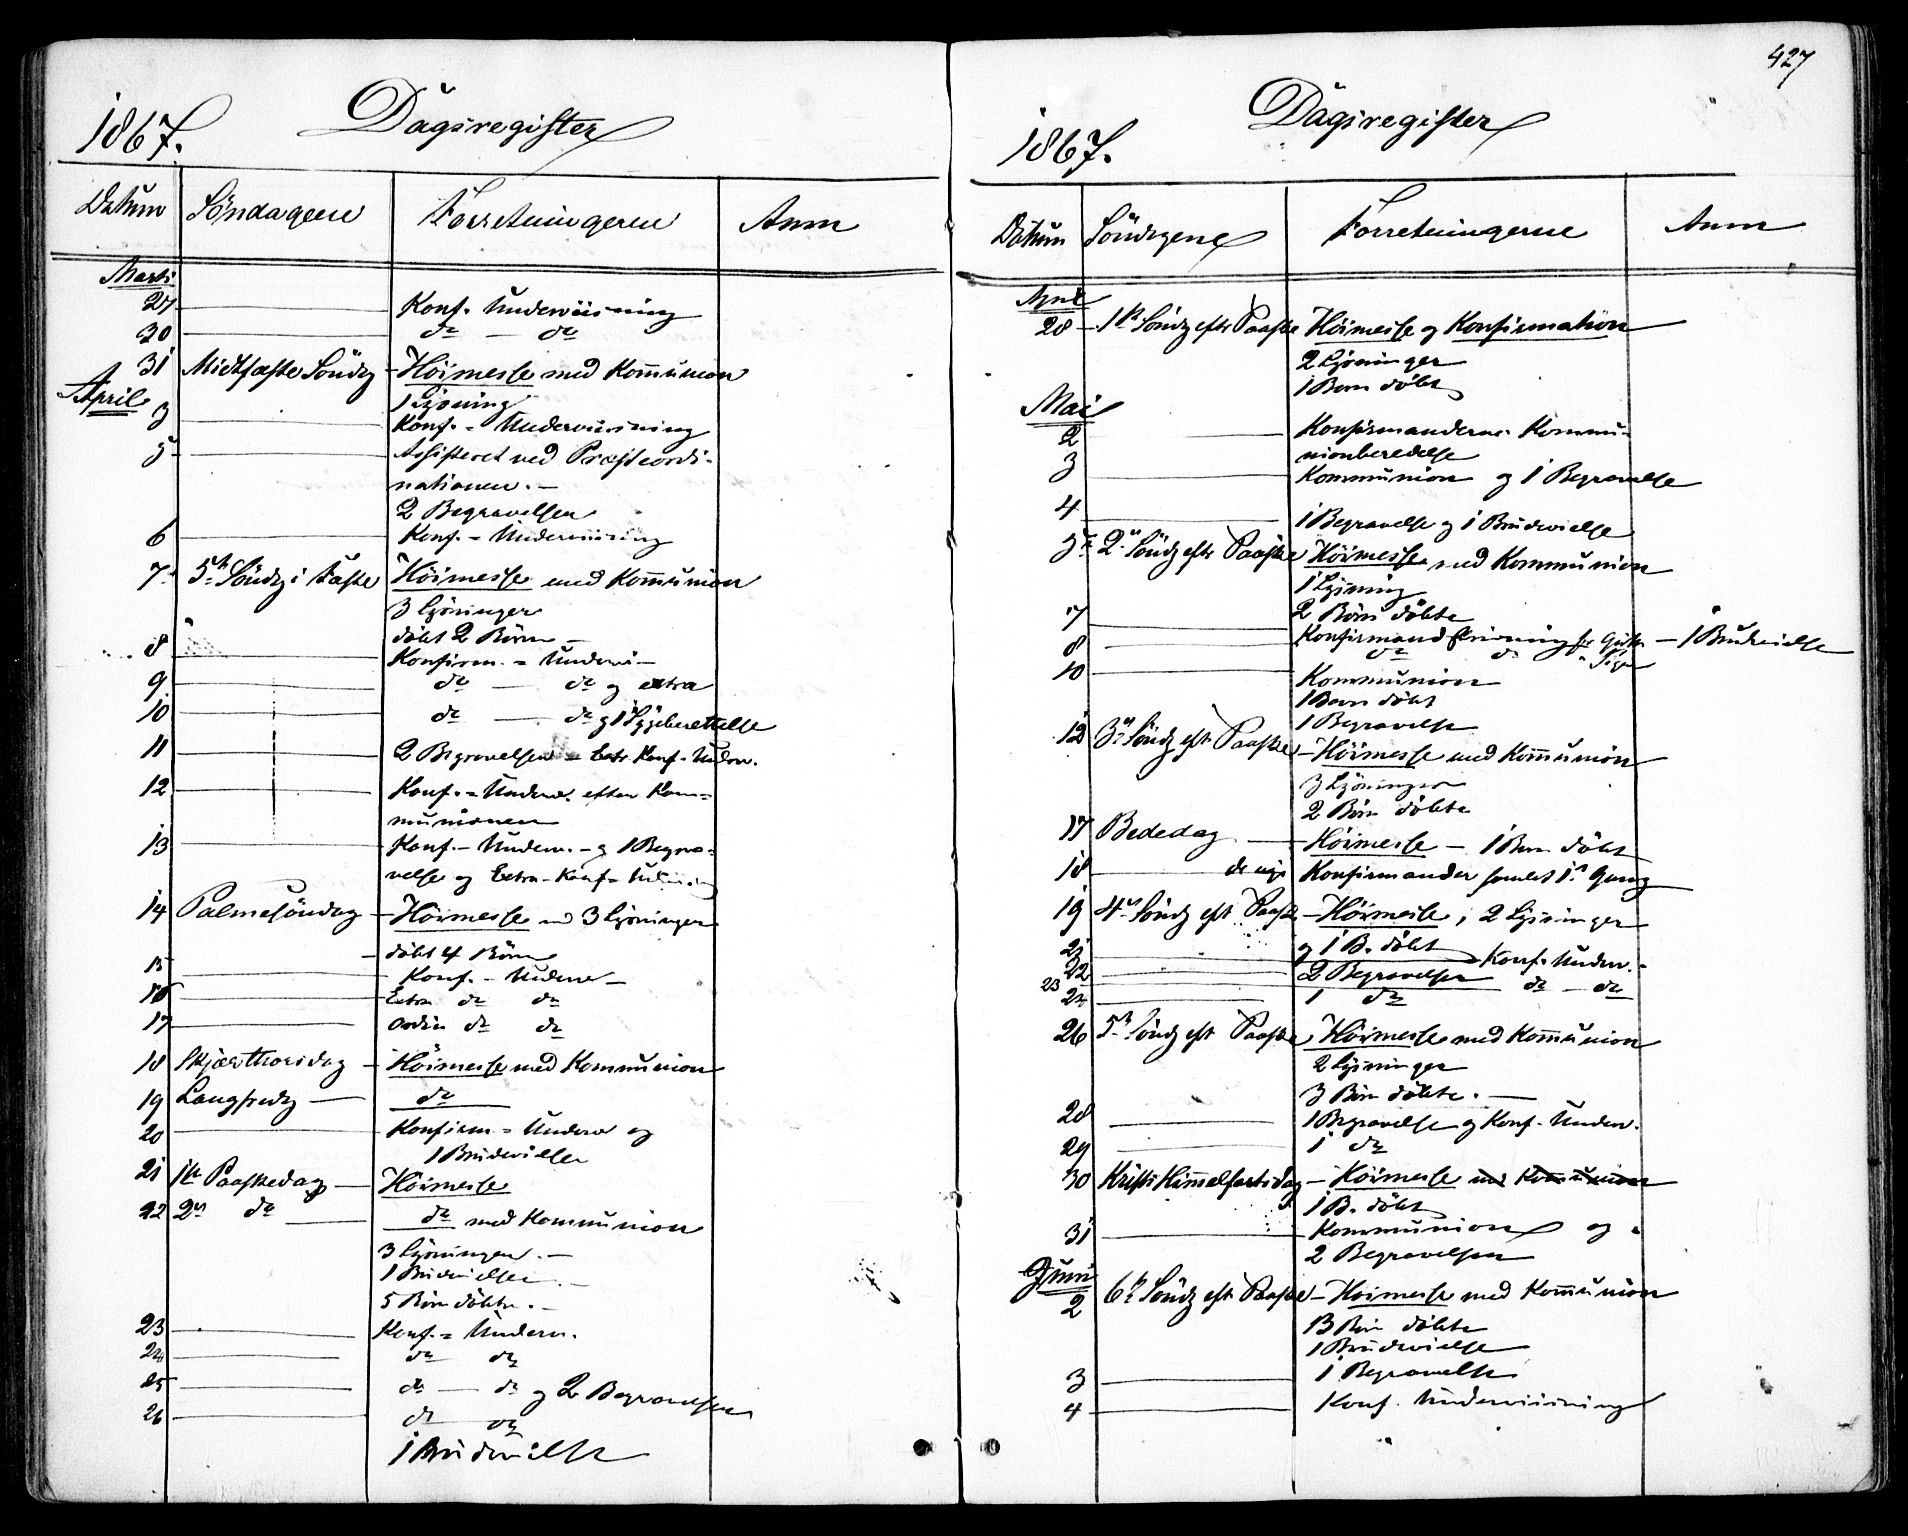 427
1867. Dagsregister
Datum Søndagene Forretningerne Anm
Marts
27 Konf. Underviisning
30 do — do
31 Midtfaste Søndg – Høimesse med Kommunion
April 1 Lysning
3 Konf. = Underviisning
5 Assisteret ved Præsteordi-
nationen. –
2 Begravelser
6 Konf. – Underviisning
7 5te Søndg i Faste Høimesse med Kommunion
3 Lysninger
døbt 2 Børn –
8 Konfirm. = Underv. –
9 do — do og extra
10 do — do og 1 Sygeberettelse
11 2 Begravelser – Extr Konf – Underv.
12 Konf. = Underv. efter Kom=
munionen
13 Konf. – Underv. – og 1 Begra=
velse og Extra – Konf =
14 Palmesøndag – Høimesse 3 Lysninger
døbt 4 Børn
15 Konf. – Underv –
16 Extra do do
17 Ordin do do
18 Skjærthorsdag – Høimesse med Kommunion
19 Langfredg — do
20 Konfirm = Underv og
1 Brudevielse
21 1te Paaskedag — Høimesse
22 2den do — do med Kommunion
3 Lysninger. –
1 Brudevielse. –
5 Børn døbte. –
23 Konf. = Underv.
24 do do
25 do — do og 2 Begravelser
26 do og
1 Brudevielse
1867. Dagsregister
Datum Søndagene Forretningerne Anm
April
28 – 1ste Søndg eftr Paaske Høimesse og Konfirmation
2 Lysninger
1 Barn døbt
Mai
2 Konfirmandernes Kommu-
nionberedelse
3 Kommunion og 1 Begravelse
4 1 Begravelse og 1 Brudevielse
5 2den Søndg eftr Paaske Høimesse med Kommunion
1 Lysning
2 Børn døbte
7 Konfirmandskrivning for Gutter — 1 Brudevielse
8 do do " Piger
10 Kommunion
1 Barn døbt
1 Begravelse
12 3die Søndg eft Paaske – Høimesse med Kommunion
3 Lysninger
2 Børn døbte
17 Bededag — Høimesse – 1 Barn døbt
18 de nye Konfirmander samlet 1ste Gang
19 4de Søndg eft Paaske – Høimesse, 2 Lysninger
og 1 B. døbt
21 Konf. Underv. –
22 2 Begravelser
23 do – do
24 1 do
26 5te Søndg eft Paaske, Høimesse med Kommunion
2 Lysninger
3 Børn døbte. —
28 1 Begravelse og Konf – Underv.
29 1 do
30 Kristi Himmelfartsdag – Høimesse med Kommunion
1 B. døbt
31 Kommunion og
2 Begravelser
Juni
2 6te Søndg eft Paaske – Høimesse med Kommunion
13 Børn døbte
1 Brudevielse
3 1 Begravelse
4 Konf. Underviisning